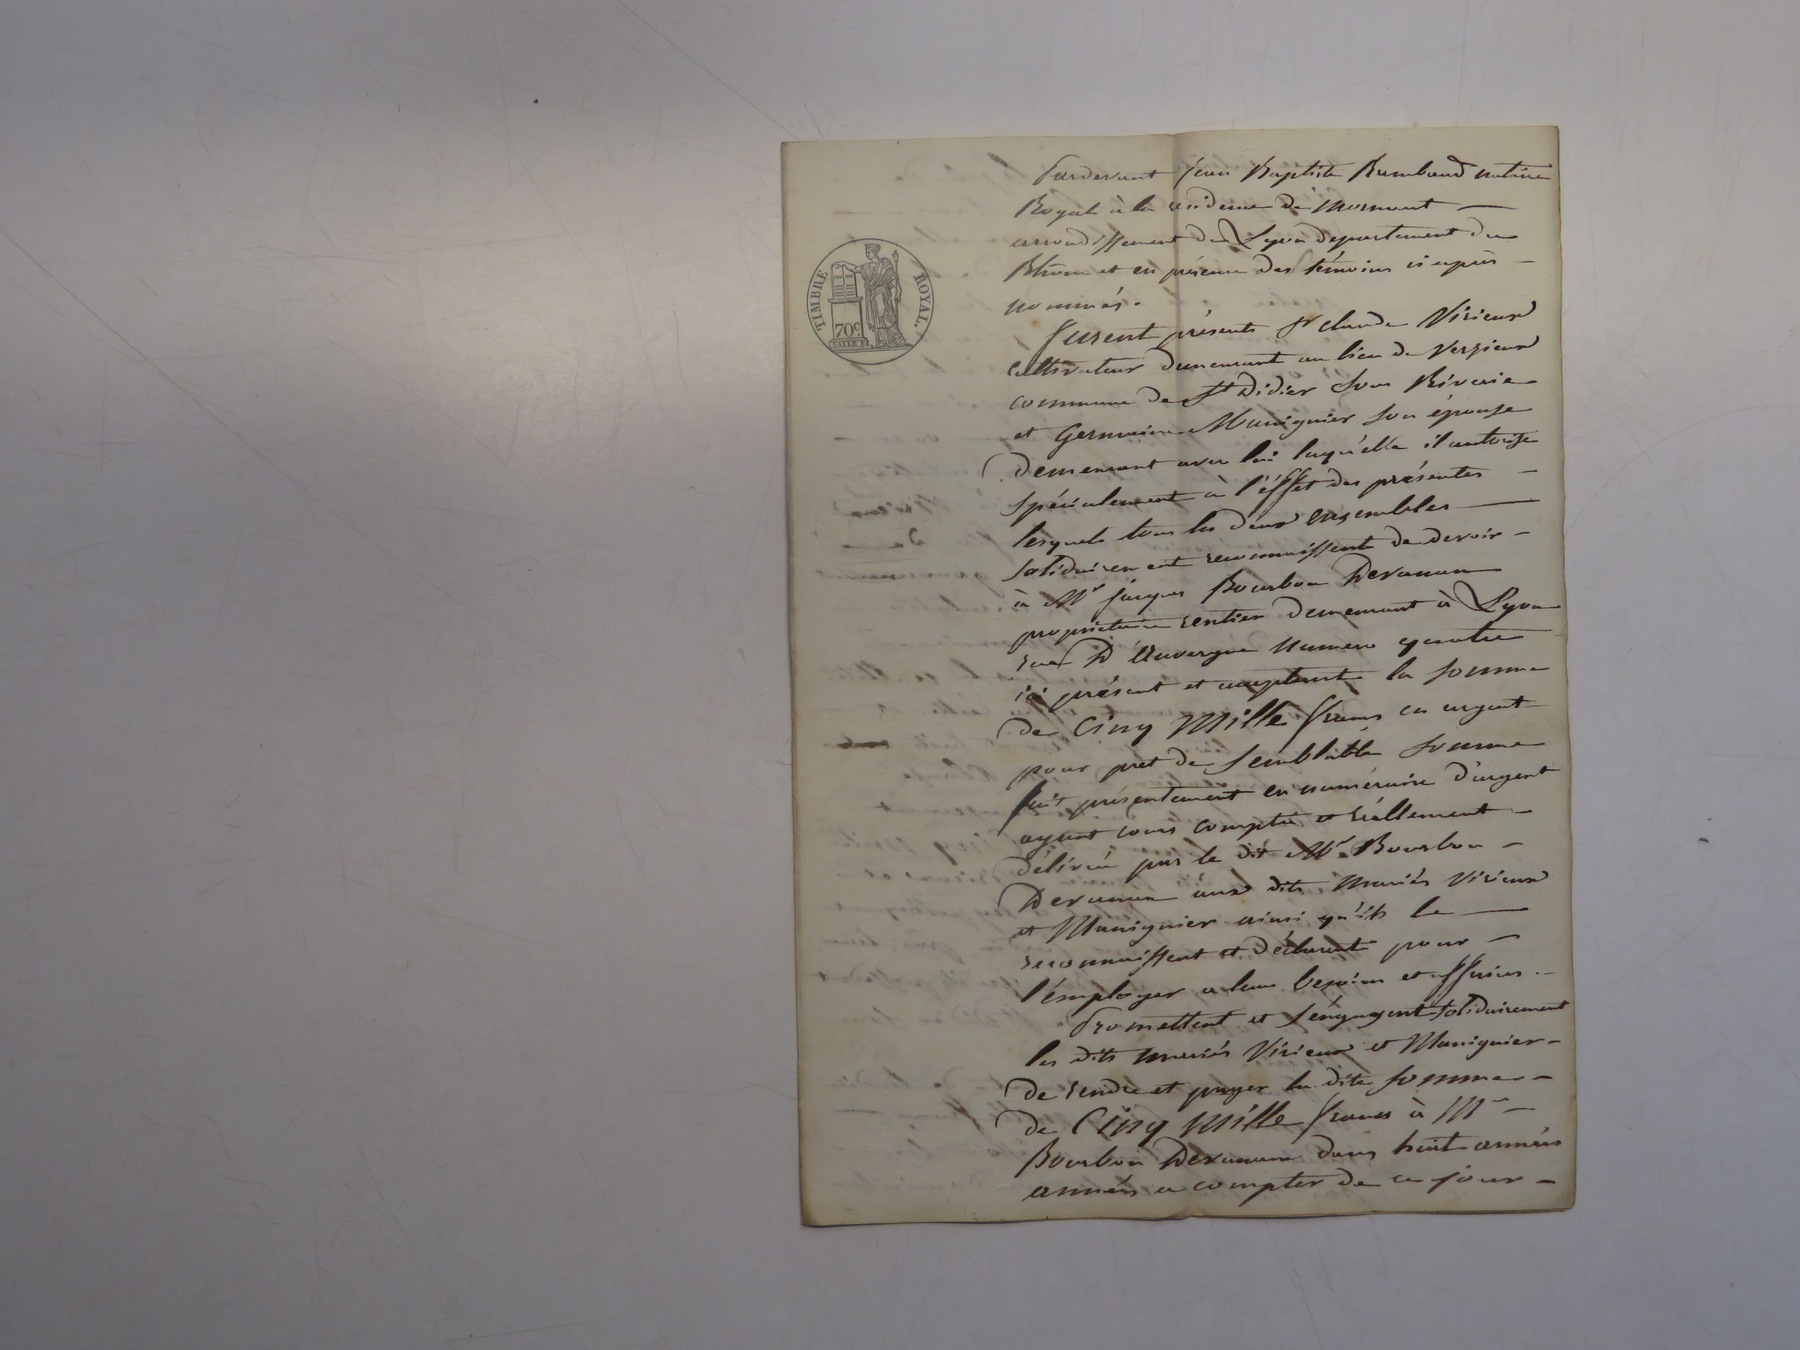 TIMBRE ROYAL.
70c
Pardevant Jean Baptiste Rambaud notaire
Royal à la résidence de Mornant
arrondissement de Lyon département du
Rhône et en présence des témoins ci après
nommés.
furent présents Sr claude Virieux
Cultivateur demeurant au lieu de Verzieux
commune de St Didier Sous Riverie
et Germaine Maniguier son épouse
demeurant avec lui laquelle il autorise
Spécialement à l'éffet des présentes
lesquels tous les deux ensembles
Solidairement reconnaissent de devoir
à Mr jacques Bourbon Devanan
propriétaire rentier demeurant à Lyon
rue D'Auvergne numéro quatre
ici présent et acceptant la somme
de Cinq Mille francs en argent
pour pret de semblable somme
fait présentement en numéraire d'argent
ayant cours comptée et réellement
délivrée par le dit Mr Bourbon
Devanan aux dits mariés Virieux
et Maniguier ainsi qu'ils le
reconnaissent et déclarent pour
l'employer a leur besoins et affaires.
Promettent et s'éngagent solidairement
les dits mariés Virieux et Maniguier
de rendre et payer la dite somme
de Cinq Mille francs à Mr
Bourbon Devanan dans huit années
années a compter de ce jour